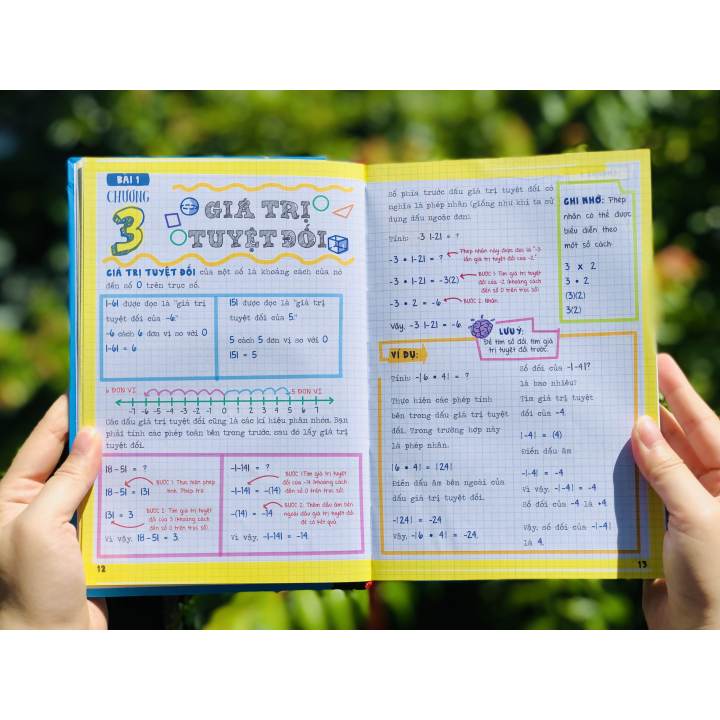 BÀI 1
CHƯƠNG
3
GIÁ TRỊ
TUYỆT ĐỐI
GIÁ TRỊ TUYỆT ĐỐI của một số là khoảng cách của nó
đến số 0 trên trục số.
|-6| được đọc là "giá trị
tuyệt đối của -6."
-6 cách 6 đơn vị so với 0
|-6| = 6
|5| được đọc là "giá trị
tuyệt đối của 5."
5 cách 5 đơn vị so với 0
|5| = 5
6 ĐƠN VỊ
5 ĐƠN VỊ
-7 -6 -5 -4 -3 -2 -1 0 1 2 3 4 5 6 7
Các dấu giá trị tuyệt đối cũng là các kí hiệu phân nhóm. Bạn
phải tính các phép toán bên trong trước, sau đó lấy giá trị
tuyệt đối.
|8 - 5| = ?
BƯỚC 1: Thực hiện phép
tính. Phép trừ
|8 - 5| = |3|
|3| = 3
BƯỚC 2: Tìm giá trị tuyệt
đối của 3 (khoảng cách
đến số 0 trên trục số).
Vì vậy, |8 - 5| = 3.
-|-14| = ?
BƯỚC 1: Tìm giá trị tuyệt
đối của -14 (khoảng cách
đến số 0 trên trục số).
-|-14| = -(14)
BƯỚC 2: Thêm dấu âm bên
ngoài dấu giá trị tuyệt đối để
có kết quả.
-(14) = -14
Vì vậy, -|-14| = -14.
12
số phía trước dấu giá trị tuyệt đối có
nghĩa là phép nhân (giống như khi ta sử
dụng dấu ngoặc đơn).
Tính: -3 |-2| = ?
-3 • |-2| = ?
Phép nhân này được đọc là "-3
lần giá trị tuyệt đối của -2."
-3 • |-2| = -3(2)
BƯỚC 1: Tìm giá trị tuyệt
đối của -2 (khoảng cách
đến số 0 trên trục số).
-3 • 2 = -6
BƯỚC 2: Nhân.
Vậy, -3 |-2| = -6.
GHI NHỚ: Phép
nhân có thể được
biểu diễn theo
một số cách:
3 × 2
3 • 2
(3)(2)
3(2)
LƯU Ý:
Để tìm số đối, tìm giá
trị tuyệt đối trước.
VÍ DỤ:
Tính: -|6 • 4| = ?
Thực hiện các phép tính
bên trong dấu giá trị tuyệt
đối. Trong trường hợp này
là phép nhân.
|6 • 4| = |24|
Điền dấu âm bên ngoài của
dấu giá trị tuyệt đối.
-|24| = -24
Vậy, -|6 • 4| = -24.
Số đối của -|-4|?
là bao nhiêu?
Tìm giá trị tuyệt
đối của -4.
|-4| = (4)
Điền dấu âm
-|-4| = -4
Vì vậy, -|-4| = -4
Số đối của -4 là +4.
Vậy, số đối của -|-4|
là 4.
13